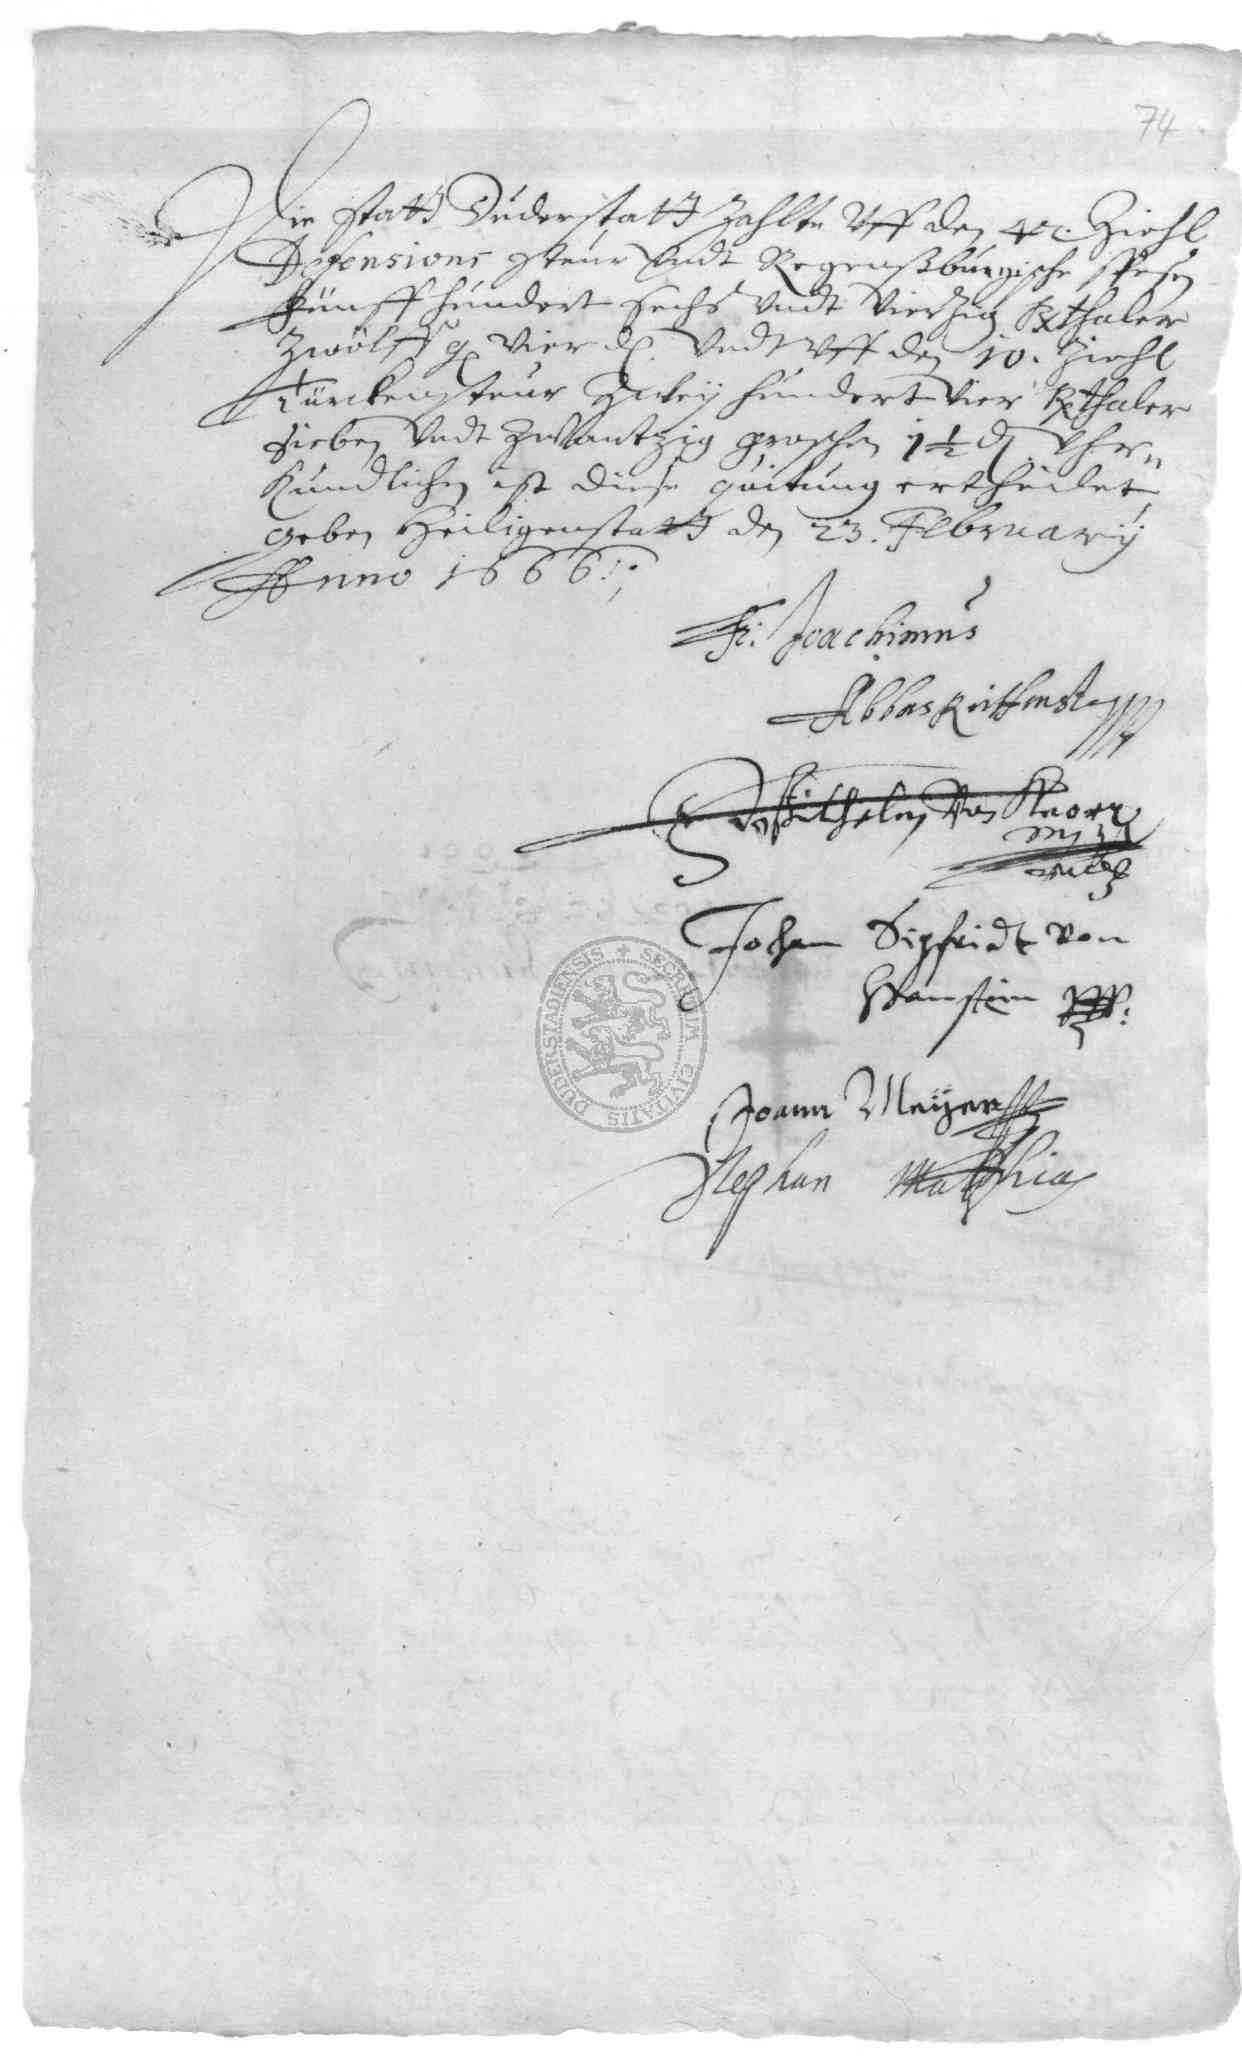 74
Die Statt Duderstatt Zahlte Uff den 4t. Ziehl
Defensions steur undt Regenßburgische spesen
Fünff hundert sechs undt Vierzig Rthaler
Zwölff g vier d. undt Uff den 10. Ziehl
Türckensteur Zweÿ hundert Vier Rthaler
sieben undt Zwantzig groschen 1½ d.
Kundlichen ist diese quitung ertheilet
geben Heiligenstatt den 23. Februarÿ
Anno 1666
Fr: Joachimus
Abbas Reiffenstein
Wilhelm Von Knorr
mpria
Johan Sigfridt von
Hanstein mpp:
Joann Meÿer
Stephan Matthias
SECRETUM CIVITATIS DUDERSTADIENSIS